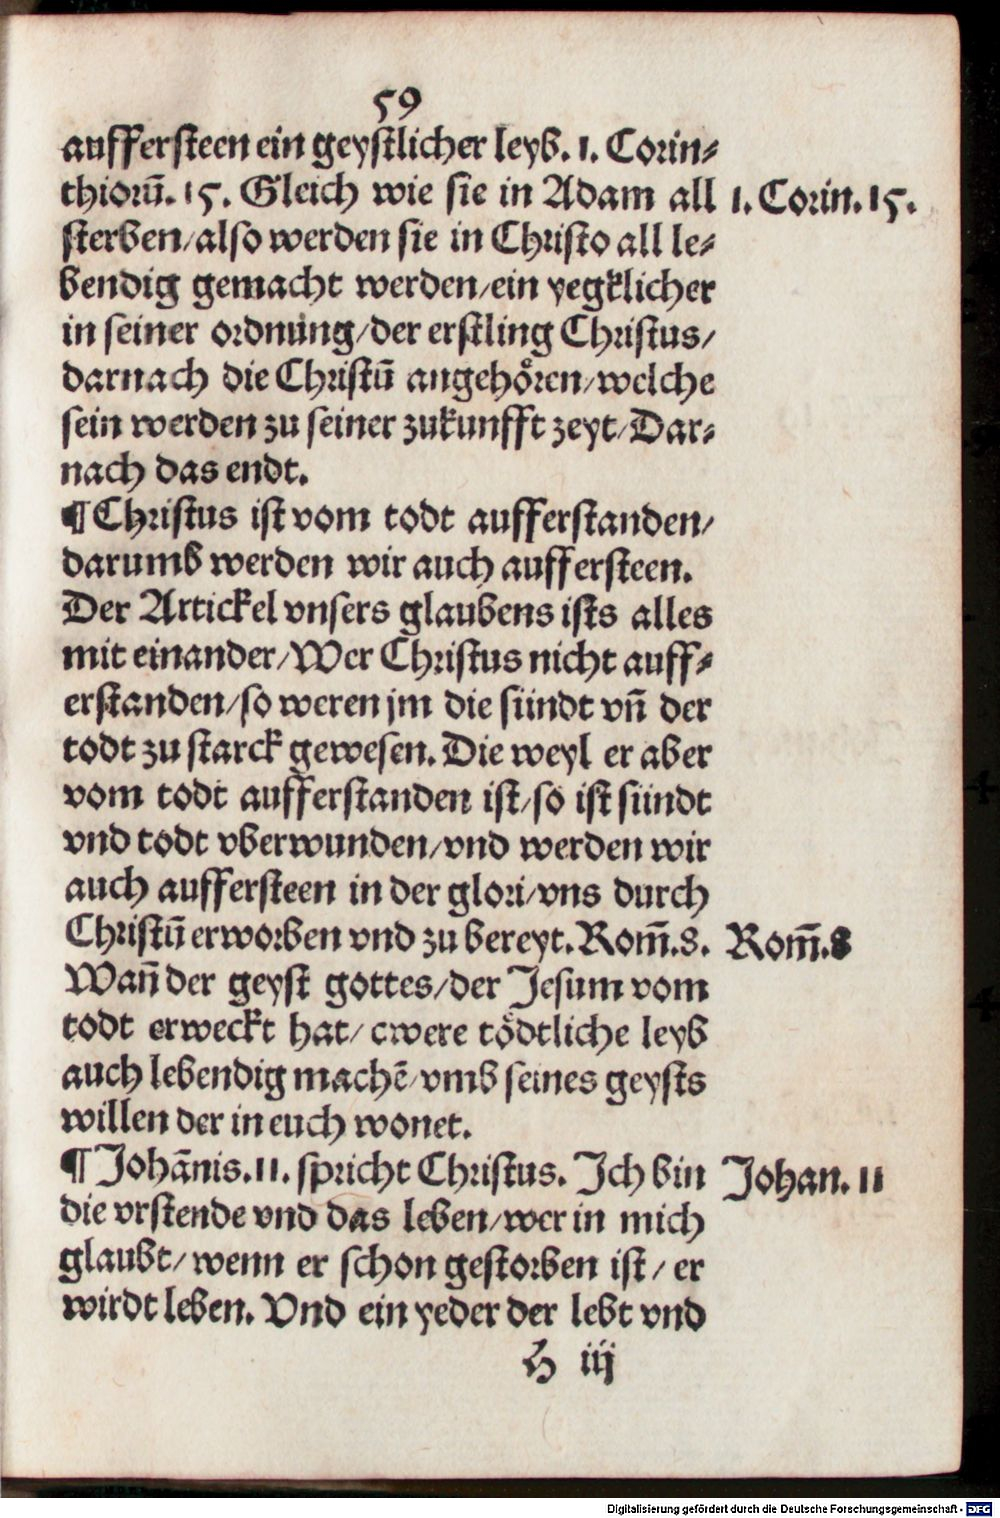 59
aufferſteen ein geyſtlicher leyb. 1. Corin⸗
thiorū. 15. Gleich wie ſie in Adam all 1. Corin. 15.
ſterben/alſo werden ſie in Chriſto all le⸗
bendig gemacht werden/ein yegklicher
in ſeiner ordnung/der erſtling Chriſtus/
darnach die Chriſtū angehoͤren/welche
ſein werden zu ſeiner zukunfft zeyt/Dar⸗
nach das endt.
¶Chriſtus iſt vom todt aufferſtanden/
darumb werden wir auch aufferſteen.
Der Artickel vnſers glaubens iſts alles
mit einander/Wer Chriſtus nicht auff⸗
erſtanden/ſo weren jm die ſündt vn̄ der
todt zu ſtarck geweſen. Die weyl er aber
vom todt aufferſtanden iſt/ſo iſt ſündt
vnd todt vberwunden/vnd werden wir
auch aufferſteen in der glori/vns durch
Chriſtū erworben vnd zu bereyt. Rom̄.8. Rom̄.8
Wan̄ der geyſt gottes/der Jeſum vom
todt erweckt hat/ ewere toͤdtliche leyb
auch lebendig machē/vmb ſeines geyſts
willen der in euch wonet.
¶ Johānis.11. ſpricht Chriſtus. Ich bin Johan. 11
die vrſtende vnd das leben/wer in mich
glaubt/ wenn er ſchon geſtorben iſt/ er
wirdt leben. Vnd ein yeder der lebt vnd
H iij
Digitalisierung gefördert durch die Deutsche Forschungsgemeinschaft - DFG